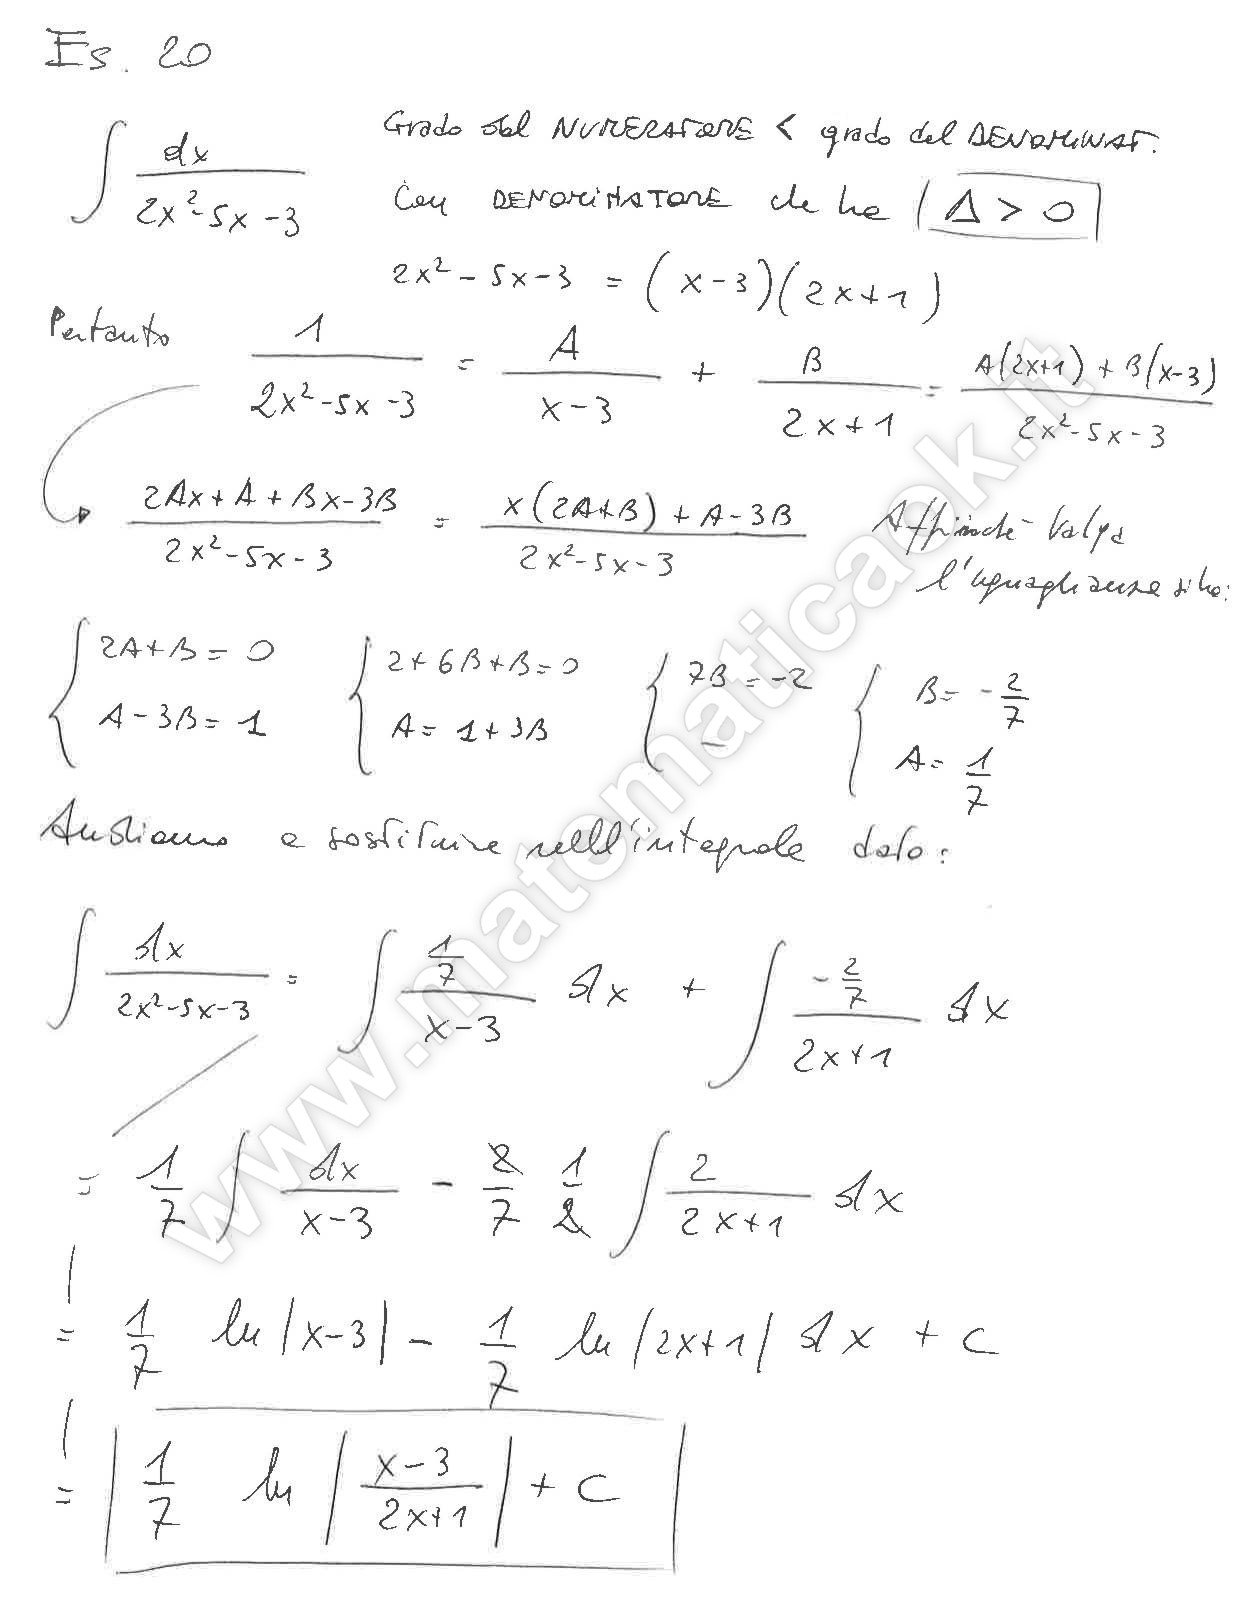 Es. 20
∫ dx / (2x²-5x-3)   Grado del NUMERATORE < grado del DENOMINAT.
Con DENOMINATORE che ha |Δ > 0|
2x² - 5x - 3 = (x-3)(2x+1)
Pertanto 1 / (2x²-5x-3) = A / (x-3) + B / (2x+1) = (A(2x+1) + B(x-3)) / (2x²-5x-3)
(2Ax + A + Bx - 3B) / (2x²-5x-3) = (x(2A+B) + A-3B) / (2x²-5x-3)   Affinché valga
l'uguaglianza si ha:
{ 2A+B = 0   { 2+6B+B=0   { 7B = -2   { B = -2/7
A-3B = 1   A = 1+3B   —   A = 1/7
Andiamo a sostituire nell'integrale dato:
∫ dx / (2x²-5x-3) = ∫ (1/7) / (x-3) dx + ∫ (-2/7) / (2x+1) dx
= 1/7 ∫ dx / (x-3) - 2/7 1/2 ∫ 2 / (2x+1) dx
= 1/7 ln|x-3| - 1/7 ln|2x+1| dx + c
= 1/7 ln |(x-3) / (2x+1)| + c
www.matematicaok.it